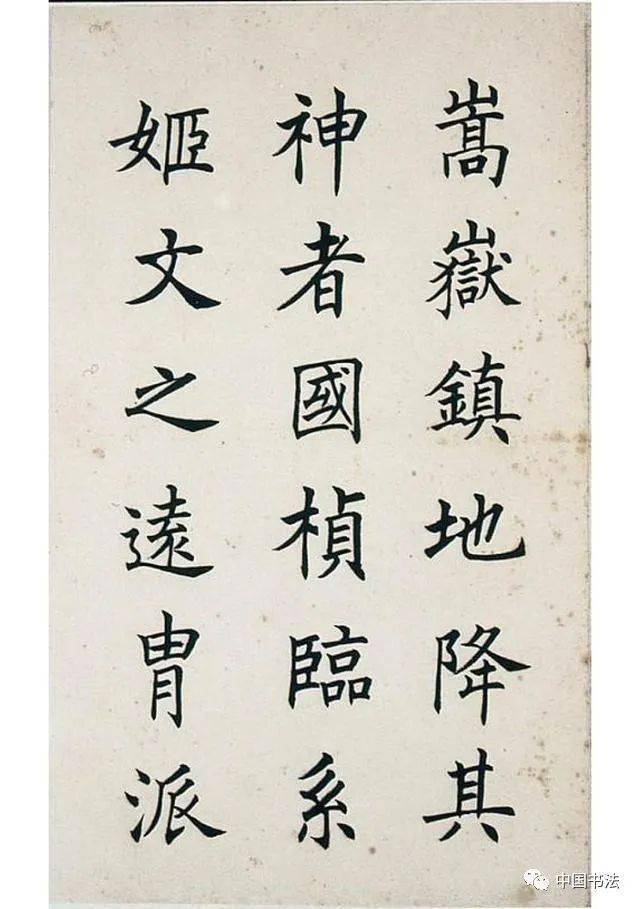 嵩嶽鎮地降其
神者國楨臨系
姬文之遠冑派
中国书法